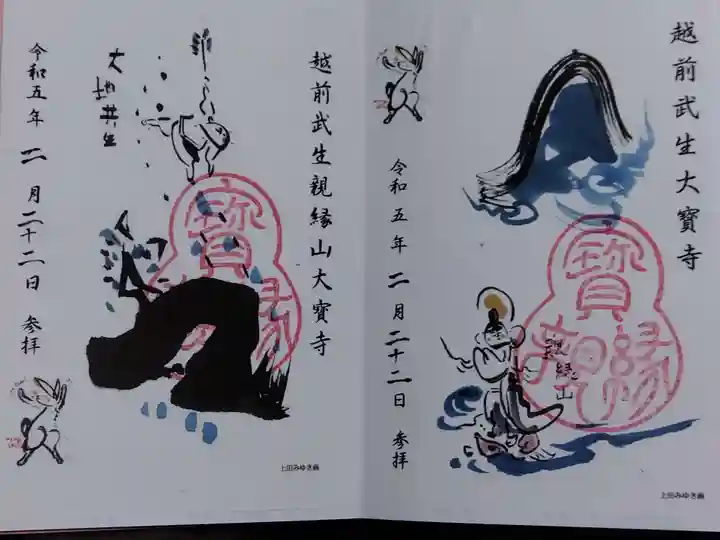 越前武生大寶寺
寶
親縁
親縁山
令和五年 二月二十二日 参拝
上田みゆき画
越前武生親縁山大寶寺
寶
縁
大地共生
令和五年 二月二十二日 参拝
上田みゆき画